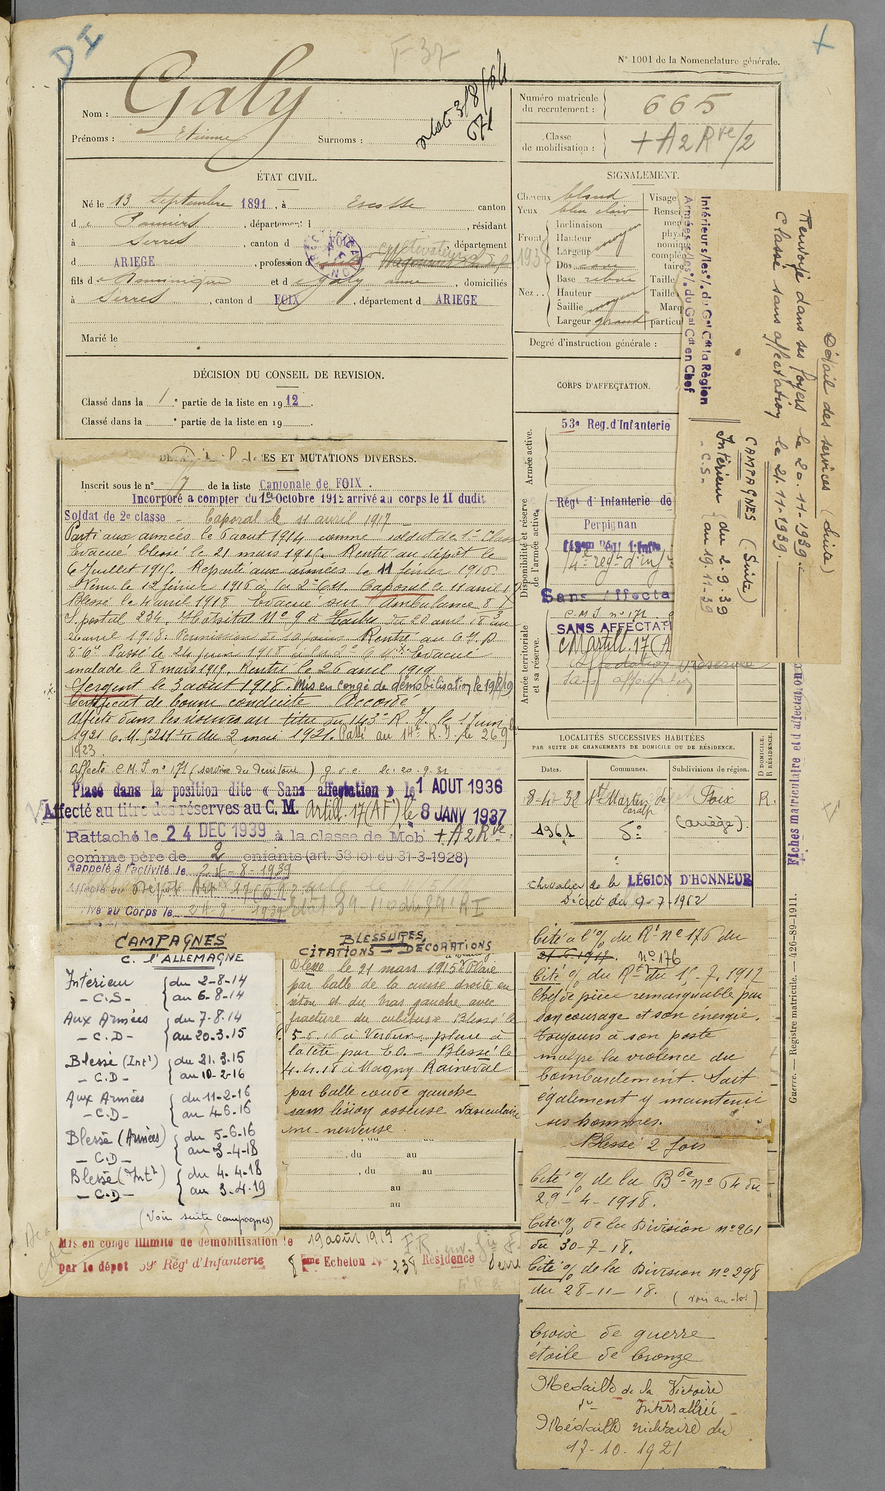 D I
F 37
N° 1001 de la Nomenclature générale.
Nom : Galy
Prénoms : Etienne Surnoms :
3/8/64
671
Numéro matricule du recrutement : 665
Classe de mobilisation : + A 2 Rve/2
ÉTAT CIVIL.
Né le 13 Septembre 1891, à Escosse canton
de Pamiers, département d , résidant
à Serres, canton d FOIX, département
d ARIEGE, profession d
fils de Dominique et de Galy anne, domiciliés
à Serres, canton d FOIX, département d ARIEGE
Marié le
SIGNALEMENT.
Cheveux blond
Yeux bleu clair
Front
Inclinaison
Hauteur moyen
Largeur
Nez
Dos
Base
Hauteur
Saillie moyen
Largeur grand
Visage
Taille
Taille
Degré d'instruction générale :
DÉCISION DU CONSEIL DE REVISION.
Classé dans la 1e partie de la liste en 1912.
Classé dans la e partie de la liste en 19 .
ES ET MUTATIONS DIVERSES.
Inscrit sous le n° 17 de la liste Cantonale de FOIX.
Incorporé à compter du 1er Octobre 1912 arrivé au corps le 11 dudit
Soldat de 2e classe - Caporal le 11 avril 1917
Parti aux armées le 6 aout 1914 comme soldat de 1e Classe
Evacué blessé le 21 mars 1915. Rentré au dépôt le
6 Juillet 1915. Reparti aux armées le 11 février 1916
Venu le 12 février 1916 à la 2e C.M. Caporal le 11 avril 17
Blessé le 4 avril 1918 Evacué sur l'ambulance 8/7
S. postal 234. Hôpital N° 9 à
malade le 8 mars 1919. Rentré le 26 avril 1919
Sergent le 3 aout 1918. Mis en congé de démobilisation le 19/8/19
Certificat de bonne conduite Accordé
1921 C.M. 5211 du 2 mai 1921. Passé au 14e R.I. le 26 9
1923.
affecté C.M.I. n° 171 (service du territoire)
Placé dans la position dite « Sans affectation » le 1 AOUT 1936
Affecté au titre des réserves au C. M. Artill. 17 (AF) le 8 JANV 1937
Rattaché le 24 DEC 1939 à la classe de Mob + A 2 Rve.
comme père de 2 enfants (art. 58 loi du 31-3-1928)
Rappelé à l'activité le 24-8-1939
CORPS D'AFFECTATION.
Armée active.
53e Reg. d'Infanterie
Disponibilité et réserve de l'armée active.
Régt d'Infanterie de
Perpignan
14e régt d'inf
Sans affecta
C.M.I n° 171
SANS AFFECTATI
Armée territoriale et sa réserve.
C.M artill. 17 (A
Sans affectation
LOCALITÉS SUCCESSIVES HABITÉES
PAR SUITE DE CHANGEMENTS DE DOMICILE OU DE RÉSIDENCE.
Dates. Communes. Subdivisions de région. D. DOMICILE. R. RÉSIDENCE.
8-4-38 St Martin de Caralp Foix R.
1961 do (Ariège).
Chevalier de la LÉGION D'HONNEUR
Décret du 9-7-1962
Détail des services (suite)
Renvoyé dans ses foyers le 20-11-1939 :
Classé sans affectation le 21-11-1939.
CAMPAGNES (Suite)
Intérieur du 2.9.39
- C.S. - au 19-11-39
Intérieurs/les°/. du Gal Cdt la Région
Armées/les°/. du Gal Cdt en Chef
Fiches matriculaire et d'affectation
Guerre. — Registre matricule. — 426-89-1911.
CAMPAGNES
C. l'ALLEMAGNE
Intérieur - C.S - du 2-8-14 au 6-8-14
Aux Armées - C.D - du 7-8-14 au 20.3.15
Blessé (Intr) - C.D - du 21.3.15 au 10-2-16
Aux Armées - C.D - du 11-2-16 au 4-6-16
Blessé (Armées) - C.D - du 5-6-16 au 3-4-18
Blessé (Intr) - C.D - du 4-4-18 au 3.4.19
(Voir suite campagnes)
BLESSURES,
CITATIONS — DÉCORATIONS
Blessé le 21 mars 1915 Plaie
par balle de la cuisse droite en
séton et du bras gauche avec
fracture du cubitus. Blessé le
5-6-16 à Verdun, plaie à
la tête par E.O. - Blessé le
4.4.18 à Magny Raineval
par balle coude gauche
sans lésion osseuse vasculaire
ni nerveuse.
, du au
, du au
au
au
Cité à l'o/. du Rt N° 176 du
n° 176
Cité o/. du Rt du 15-7-1917
Chef de pièce remarquable par
son courage et son énergie.
Toujours à son poste
malgré la violence du
bombardement. Sait
également y maintenir
ses hommes.
Blessé 2 fois
Cité o/. de la Bde n° 64 du
29-4-1918.
Cité o/. de la Division n° 261
du 30-7-18.
Cité o/. de la Division n° 298
du 28-11-18. (voir au dos)
Croix de guerre
étoile de bronze
Médaille de la Victoire
do Interalliée -
Médaille militaire du
17-10-1921
Mis en congé illimité de démobilisation le 19 aout 1919
par le dépôt 59e Régt d'Infanterie 8ème Echelon N° 238 Résidence Serres